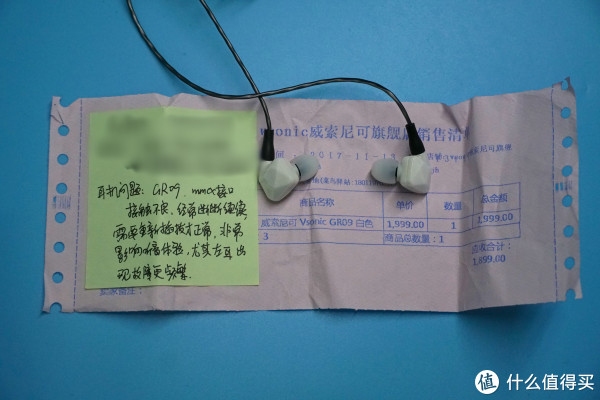 Vsonic威索尼可旗舰店销售清
2017-11-1
商品名称 单价 数量 总金额
威索尼可 Vsonic GR09 白色 1,999.00 1 1,999.00
3 商品总数量：1
合计：
1,899.00
耳机问题：GR09，mmcx接口
接触不良，经常出现断断续续
需要重新插拔才正常，非常
影响听音体验，尤其左耳出
现故障更频繁.
值 什么值得买